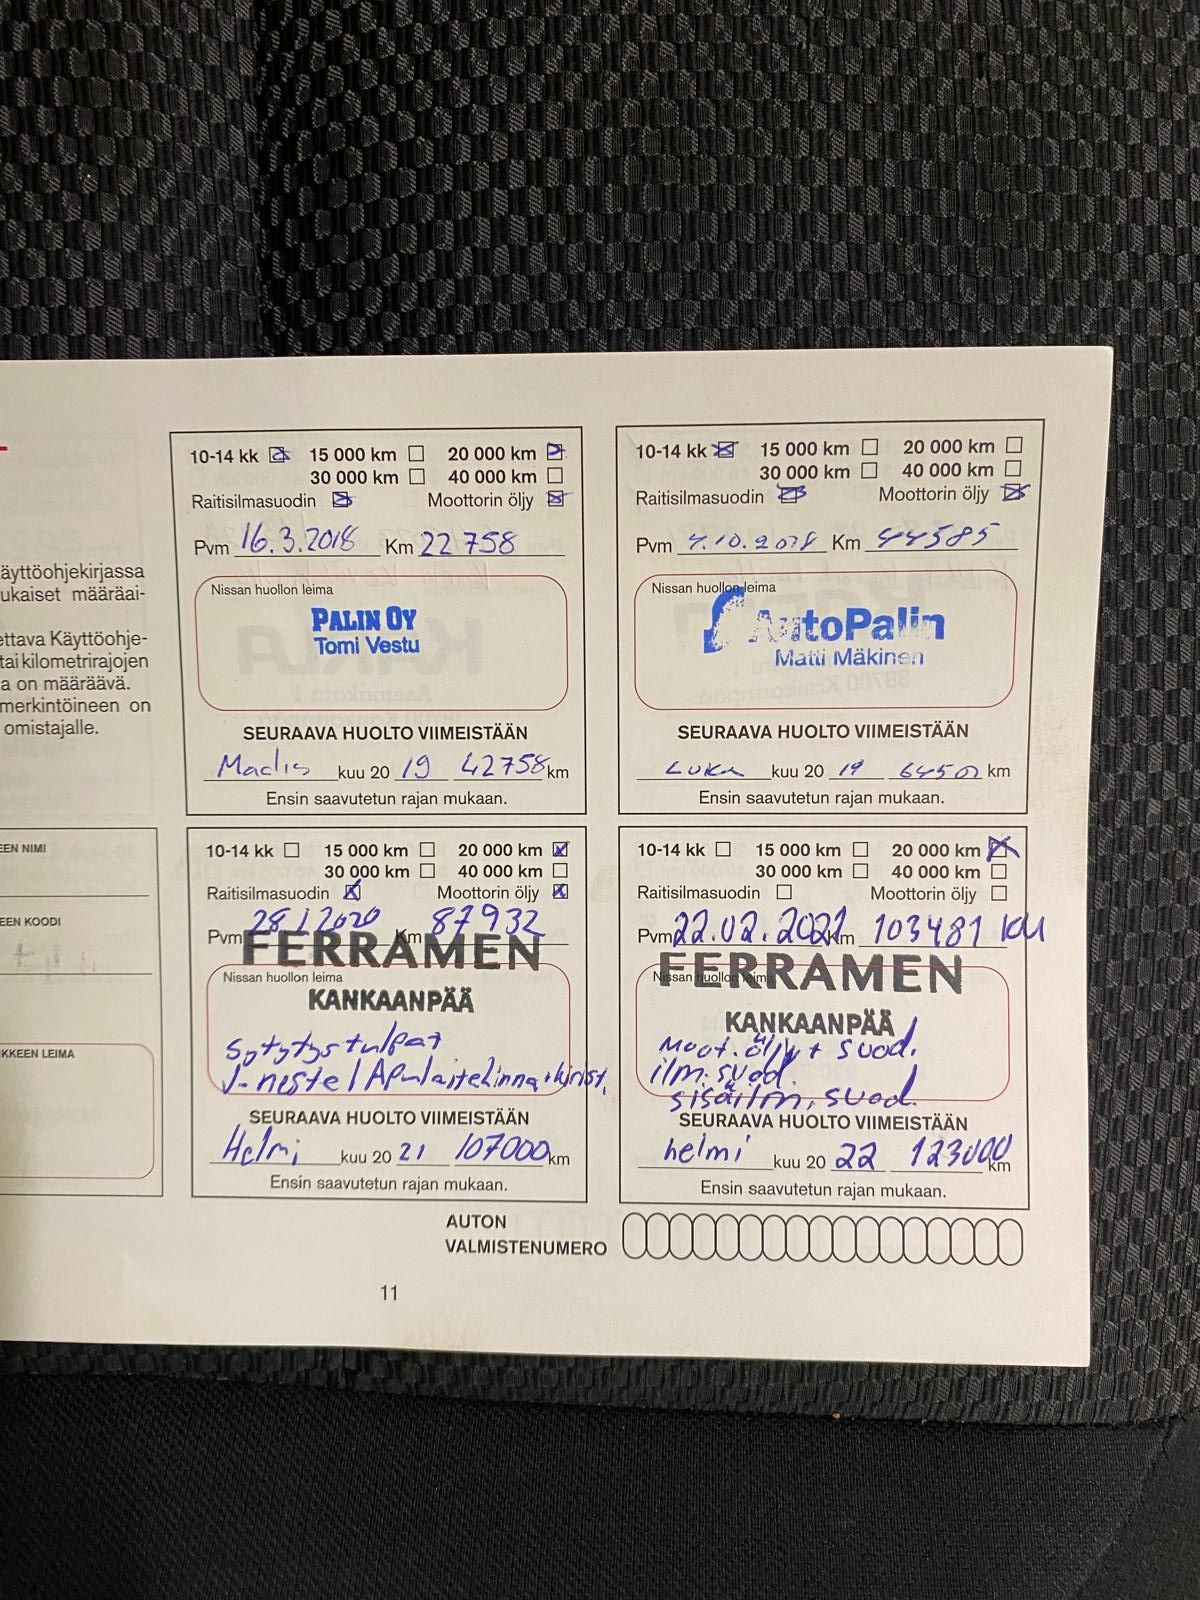 äyttöohjekirjassa
ukaiset määräai-
ettava Käyttöohje-
tai kilometrirajojen
a on määräävä.
merkintöineen on
omistajalle.
EEN NIMI
EEN KOODI
KKEEN LEIMA
10-14 kk 15 000 km 20 000 km
30 000 km 40 000 km
Raitisilmasuodin Moottorin öljy
Pvm 16.3.2018 Km 22 758
Nissan huollon leima
PALIN OY
Tomi Vestu
SEURAAVA HUOLTO VIIMEISTÄÄN
Maalis kuu 20 19 42758 km
Ensin saavutetun rajan mukaan.
10-14 kk 15 000 km 20 000 km
30 000 km 40 000 km
Raitisilmasuodin Moottorin öljy
Pvm 4.10.2018 Km 44585
Nissan huollon leima
AutoPalin
Matti Mäkinen
SEURAAVA HUOLTO VIIMEISTÄÄN
Loka kuu 20 19 km
Ensin saavutetun rajan mukaan.
10-14 kk 15 000 km 20 000 km
30 000 km 40 000 km
Raitisilmasuodin Moottorin öljy
Pvm 28.1.2020 Km 87932
FERRAMEN
Nissan huollon leima
KANKAANPÄÄ
Sytytystulpat
J-neste / Apulaitehinna+kirist.
SEURAAVA HUOLTO VIIMEISTÄÄN
Helmi kuu 20 21 107000 km
Ensin saavutetun rajan mukaan.
10-14 kk 15 000 km 20 000 km
30 000 km 40 000 km
Raitisilmasuodin Moottorin öljy
Pvm 22.02.2021 Km 103481 KM
FERRAMEN
Nissan huollon leima
KANKAANPÄÄ
Moot.öljy + suod.
ilm.suod.
sisäilm.suod.
SEURAAVA HUOLTO VIIMEISTÄÄN
helmi kuu 20 22 123000 km
Ensin saavutetun rajan mukaan.
AUTON
VALMISTENUMERO
11